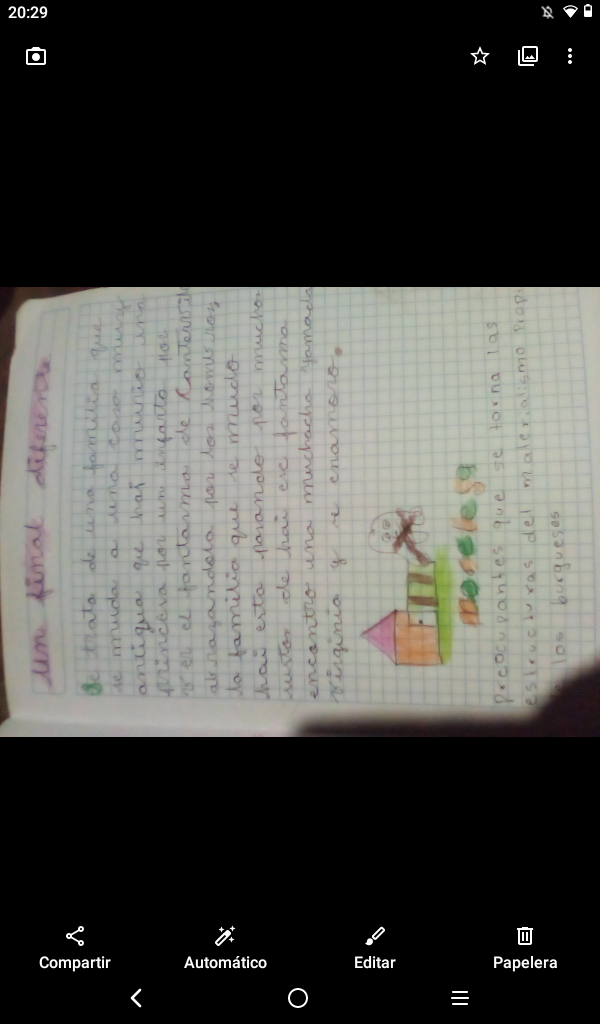 20:29
un final diferende
Se trata de una familia que
se muda a una casa muy
antigua que hai murio una
princesa por un infarto por
ver el fantasma de Cantervil
abrazandola por los homvros,
la familia que se mudo
hai esta pasando por mucho
sustos de hai ese fantasma
encontro una muchacha yamada
virginia y se enamoro.
noveles
preocupantes que se torna las
estructuras del materialismo
los burgueses
Compartir
Automático
Editar
Papelera